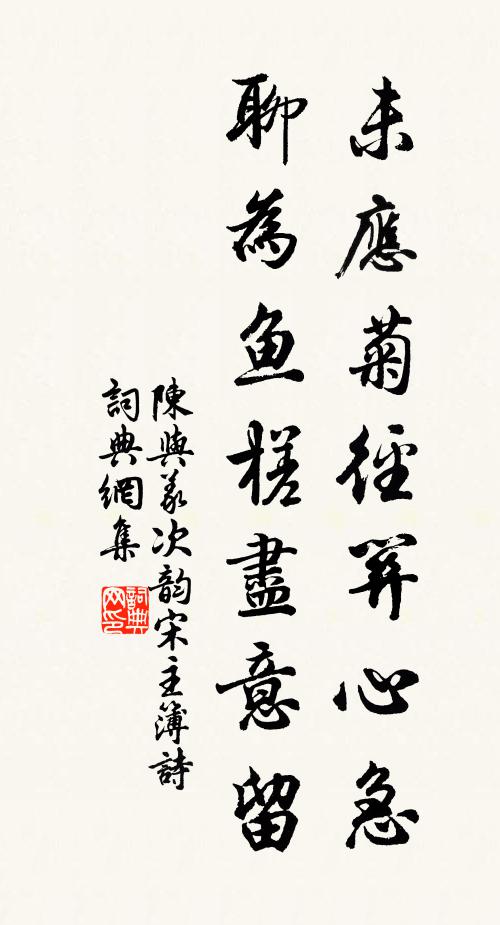 未應菊徑關心急
聊為鱼槎盡意留
陳與義次韵宋主簿詩
詞典網集
詞典
网印